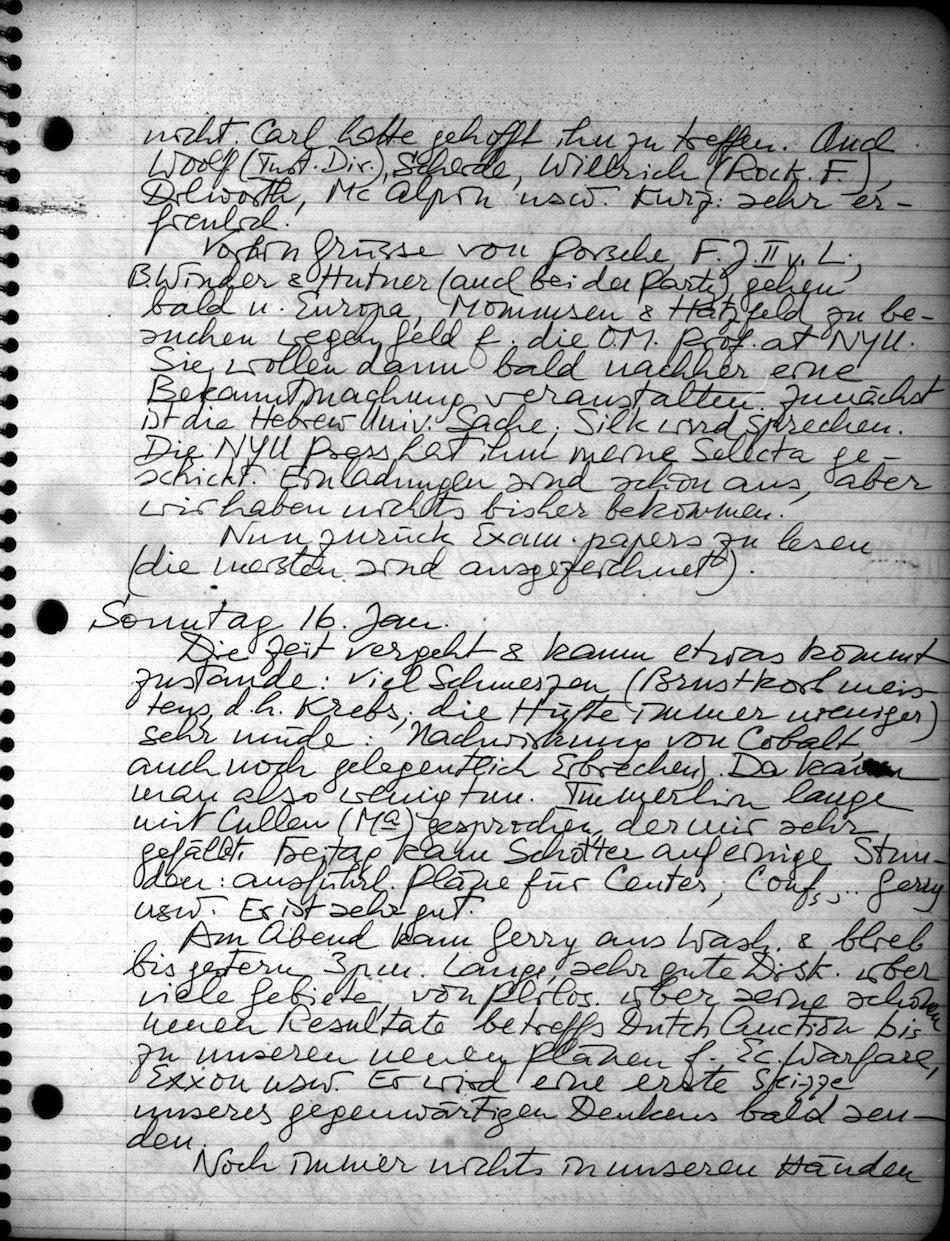 nicht. Carl hatte gehofft ihn zu treffen. Auch
Woolf (Inst. Dir.), Scheide, Willrich (Rock. F.),
Dilworth, McAlpin usw. Kurz: sehr er-
freulich.
Vorhin Grüsse von Porsche F. J. II v. L.;
B. Winder & Hutner (auch bei der Party) gehen
bald n. Europa, Mommsen & Hatzfeld zu be-
suchen wegen Geld f. die O.M. Prof. at NYU.
Sie wollen dann bald nachher eine
Bekanntmachung veranstalten. Zunächst
ist die Hebrew Univ. Sache; Silk wird sprechen.
Die NYU Press hat ihm meine Selecta ge-
schickt. Einladungen sind schon aus, aber
wir haben nichts bisher bekommen.
Nun zurück Exam. papers zu lesen
(die meisten sind ausgezeichnet).
Sonntag 16. Jan.
Die Zeit vergeht & kaum etwas kommt
zustande: viel Schmerzen (Brustkorb meis-
tens, d.h. Krebs, die Hüfte immer weniger)
sehr müde: Nachwirkung von Cobalt,
auch noch gelegentlich Erbrechen. Da kann
man also wenig tun. Immerhin lange
mit Cullen (Ma) gesprochen, der mir sehr
gefällt. Freitag kam Schotter auf einige Stun-
den: ausführl. Pläne für Center, Conf., .. Gerry
usw. Er ist sehr gut.
Am Abend kam Gerry aus Wash. & blieb
bis gestern 3pm. Lange, sehr gute Disk. über
viele Gebiete, von Philos. über seine schönen
neuen Resultate betreffs Dutch Auction bis
zu unseren neuen Plänen f. Ec. Warfare,
Exxon usw. Er wird eine erste Skizze
unseres gegenwärtigen Denkens bald sen-
den.
Noch immer nichts in unseren Händen